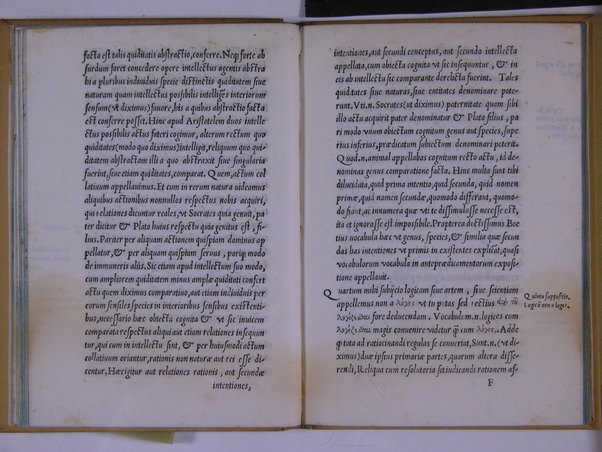 facta est talis quiditatis abstractio, conferre. Neq; forte ab
surdum foret concedere opere intellectus agentis abstra
hi a pluribus indiuiduis specie distinctis quiditatem siue
naturam quam intellectus possibilis intelliges interiorum
sensuum (vt diximus) fauore, bis a quibus abstractio facta
est conferre posset. Hinc apud Aristotelem duos intelle
ctus possibilis actus fateri cogimur, alterum rectum quo
quiditates (modo quo diximus) intelligit, reliquum quo qui-
ditatem abstractam illi a quo abstraxit siue singularia
fuerint, siue etiam quiditates, comparat. Quem, actum col
latiuum appellauimus. Et cum in rerum natura uideamus
aliquibus actionibus nonnullos respectus nobis acquiri,
qui relationes dicuntur reales, vt Socrates quia genuit, pa-
ter dicitur & Plato huius respectu quia genitus est, fi-
lius. Pariter per aliquam actionem quispiam dominus ap
pellatur, & per aliquam quispiam seruus, pariq; modo
de innumeris aliis. Sic etiam apud intellectum suo modo,
cum ampliorem quiditatem minus amplæ quiditati confert
actu quem diximus comparatiuo, aut etiam indiuiduis per
eorum sensiles species in interioribus sensibus existenti-
bus, necessario hæc obiecta cognita & vt sic inuicem
comparata respectus aliqui aut etiam relationes insequun
tur, qui cum in intellectu sint, & per huiusmodi actum
collatiuum oriantur, rationis non naturæ aut rei esse di-
centur. Hæc igitur aut relationes rationis, aut secundæ
intentiones,
intentiones, aut secundi conceptus, aut secundo intellecta
appellata, cum obiecta cognita vt sic insequuntur, & in
eis ab intellectu sic comparante derelicta fuerint. Tales
quiditates siue naturas, siue entitates denominare pote-
runt. Vti.n. Socrates (at diximus) paternitate quam sibi
illo actu acquirit pater denominatur & Plato filius, pa
ri modo vnum obiectum cognitum genus aut species, supe
rius inferius, prædicatum subiectum denominari poterit.
Quod.n. animal appellabas cognitum recto actu, id de-
nominas genus comparatione facta. Hinc multa sunt tibi
dilucidata, quid prima intentio, quid secunda, quid nomen
primæ, quid nomen secundæ, quomodo differant, quomo-
do fiant, ac innumera quæ vti te dissimulasse necesse est,
ita et ignorasse est impossibile. Propterea doctissimus Boe
tius vocabula hæc vt genus, species, & similia quæ secun
das has intentiones vt primis in existentes explicat, quasi
vocabulorum vocabula in antepredicamentorum exposi-
tione appellauit.
Quartum mihi subijcio logicam siue artem, siue scientiam
appellemus non a λόγος vt tu putas sed rectius
fore deducendam. Vocabulum.n. logices cum
magis conuenire videtur q̃ cum λόγος. Adde
q̃ tota ad ratiocinandi regulas se conuertat, Sunt.n. (vt di
ximus) duæ ipsius primariæ partes, quarum altera disse-
rendi, Reliqua cum resolutoria sit iudicandi rationem af-
F
Quinta suppositio,
Logicā non a logos.